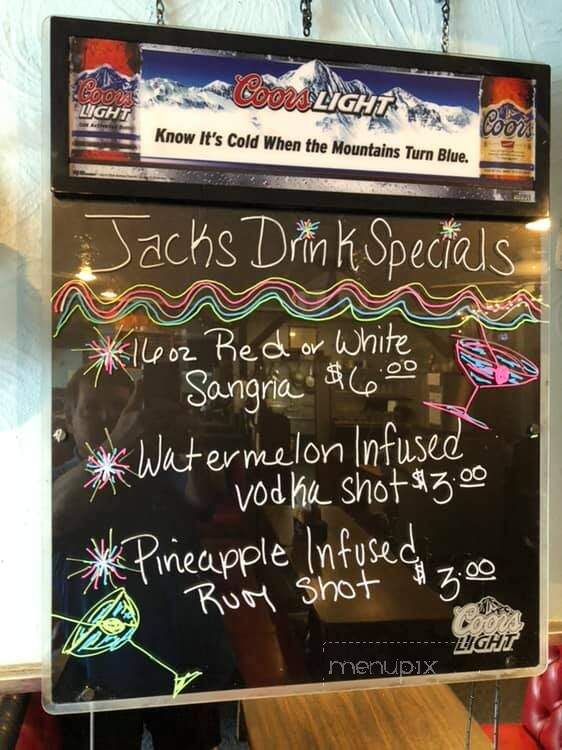 Coors LIGHT
Coors
LIGHT
Coors
Know It's Cold When the Mountains Turn Blue.
Jacks Drink Specials
16oz Red or White
Sangria $6.00
Watermelon Infused
vodka shot $3.00
Pineapple Infused
Rum shot $3.00
Coors
LIGHT
menupix